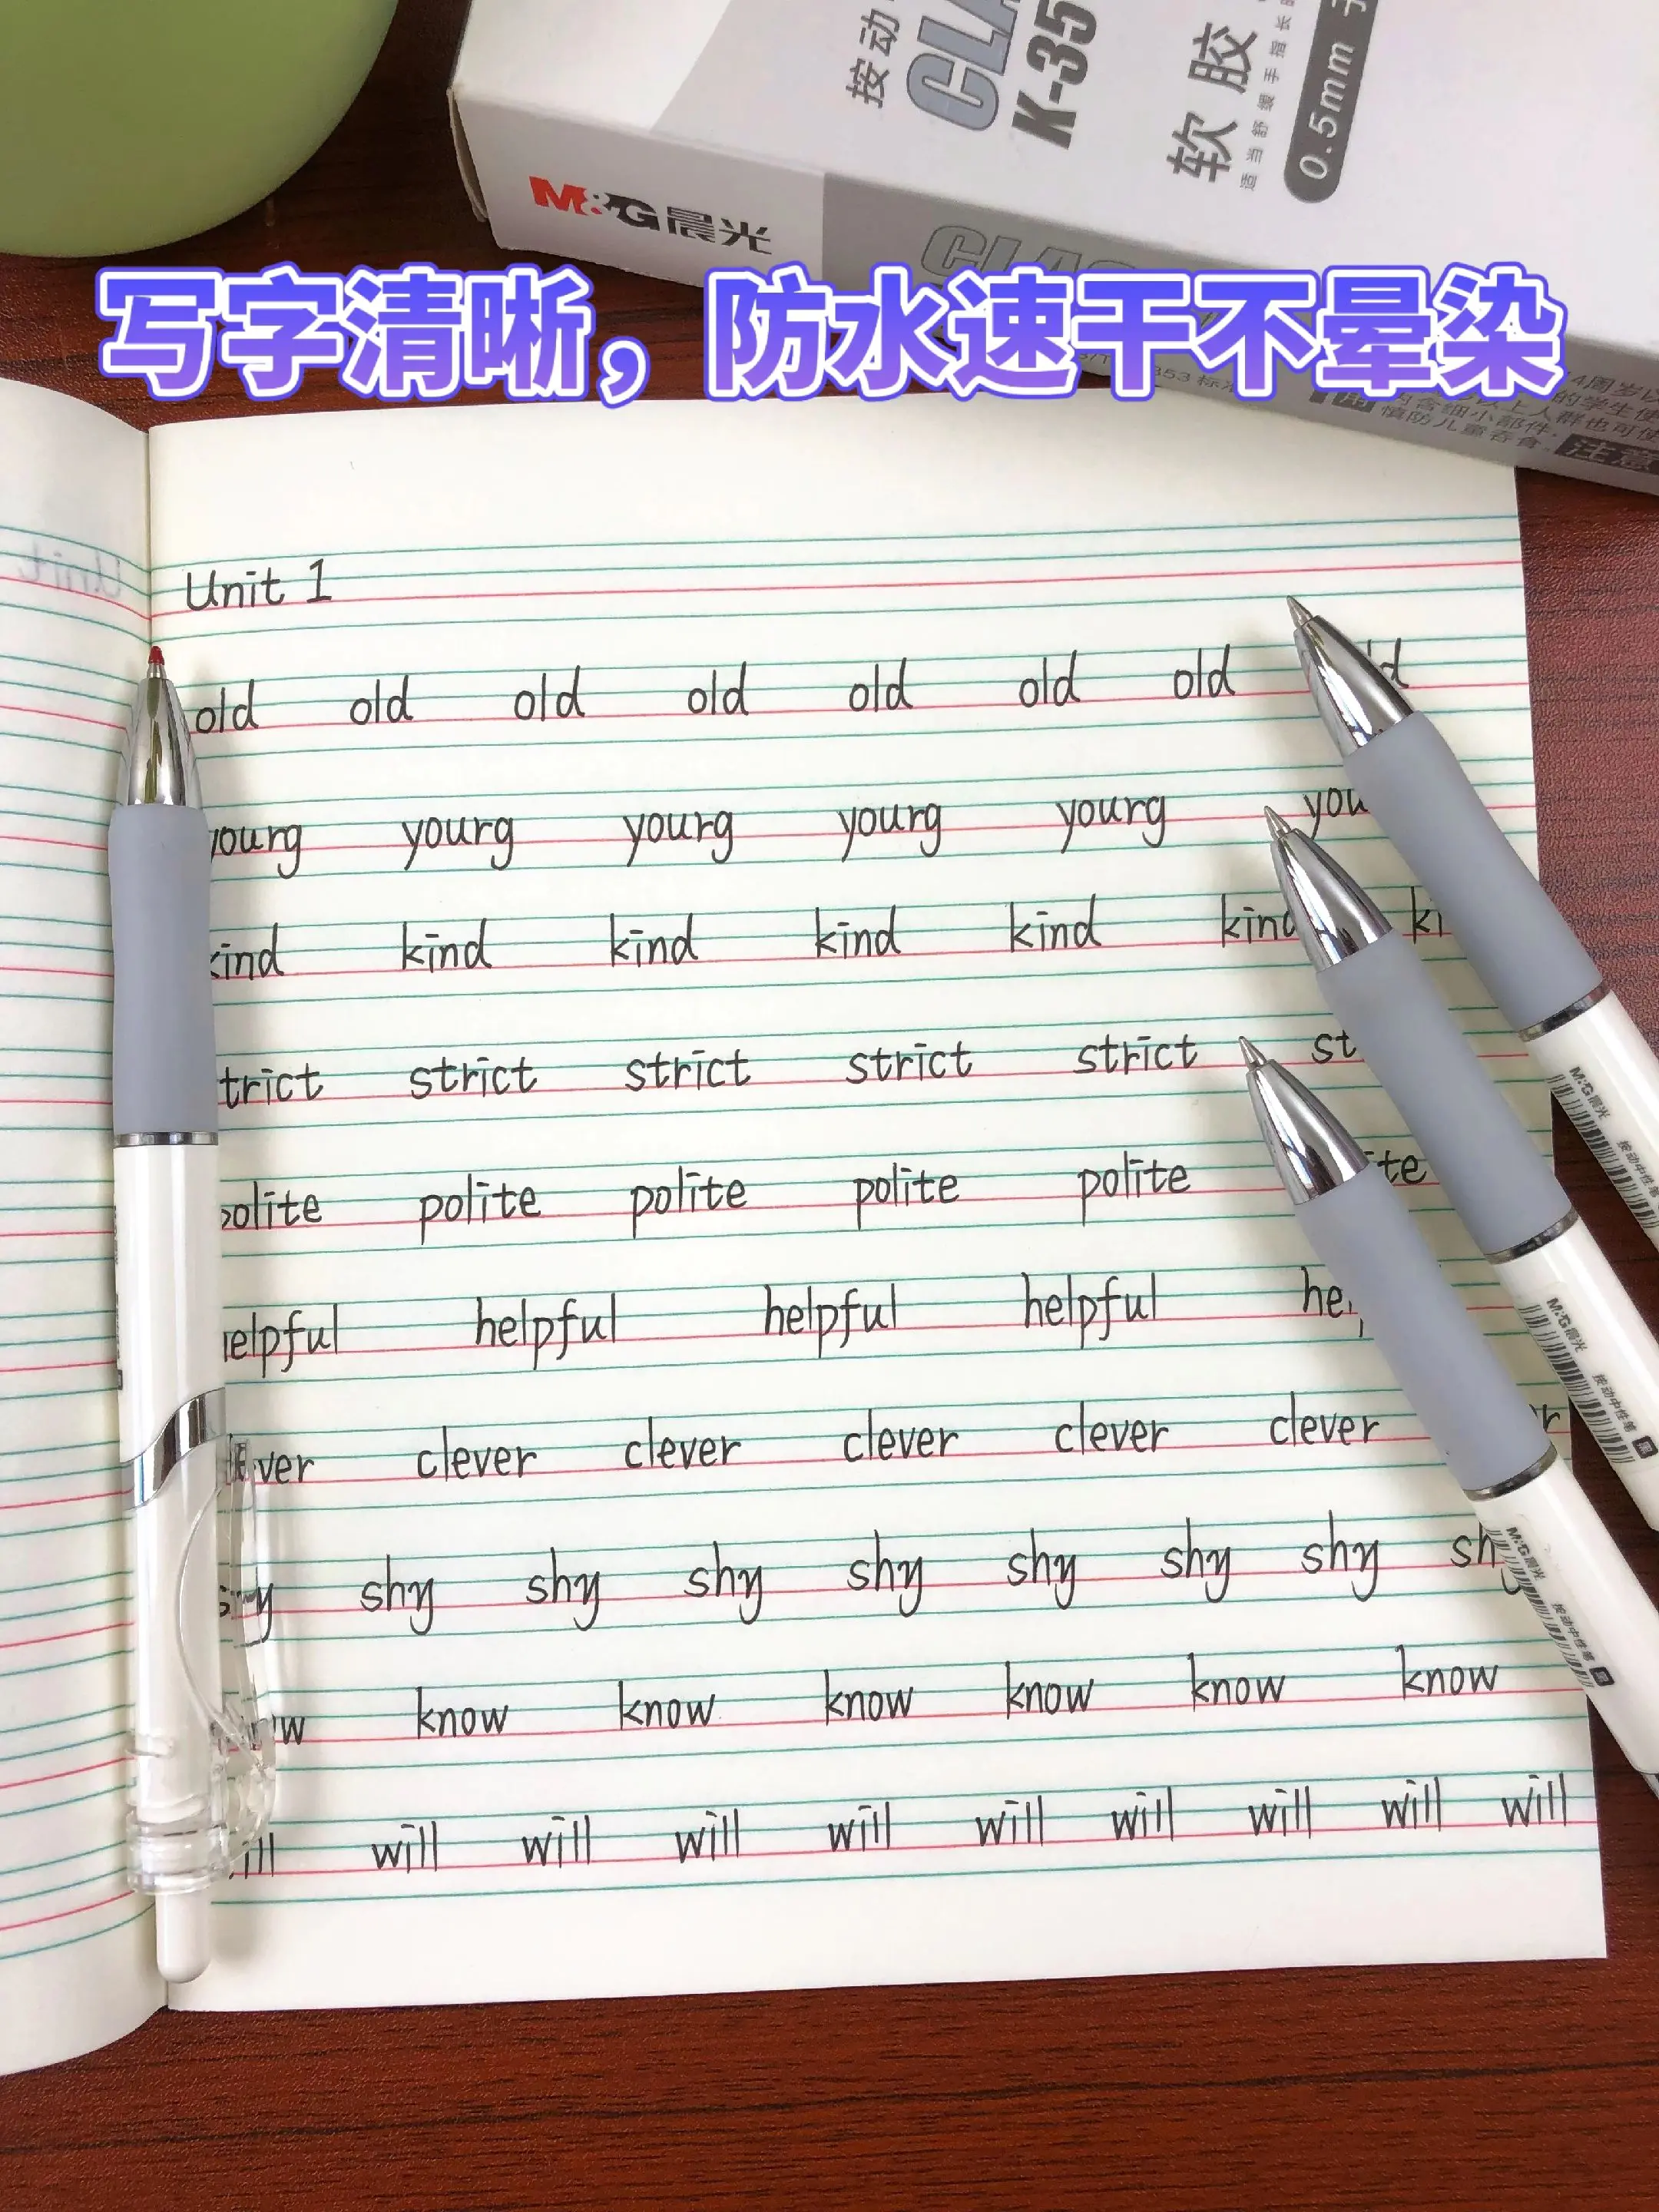 按动
CLA
K-35
软胶
适当舒缓手指长
0.5mm 子
M&G晨光
CLAS
写字清晰，防水速干不晕染
853 标准
4周岁以
的学生使
以上人群也可使
用
内含细小部件,
慎防儿童吞食。
注意
Unit
Unit 1
old old old old old old old ld
yourg yourg yourg yourg yourg you
kind kind kind kind kind kind ki
trict strict strict strict strict st
polite polite polite polite polite ite
elpful helpful helpful helpful hel
ver clever clever clever clever clever er
shy shy shy shy shy shy shy shy sh
w know know know know know know
ill will will will will will will will will will
M&G晨光 按动中性笔
M&G晨光 按动中性笔 黑
M&G晨光 按动中性笔 黑